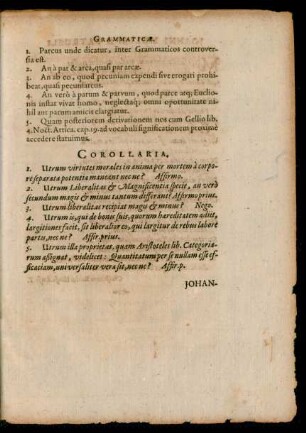 GRAMMATICÆ.
1. Parcus unde dicatur, inter Grammaticos controver-
sia est.
2. An à par & arca, quasi par arcæ.
3. An ab eo, quod pecuniam expendi sive erogari prohi-
beat, quasi pecuniarcus.
4. An verò à parum & parvum, quod parce atq; Euclio-
nis instar vivat homo, neglectâq; omni opportunitate ni-
hil aut parum amicis elargiatur.
5. Quam posteriorem derivationem nos cum Gellio lib.
4. Noct. Attica. cap. 19. ad vocabuli significationem proximè
accedere statuimus.
COROLLARIA,
1. Utrum virtutes morales in anima per mortem à corpo-
re separata potentia maneant nec ne? Affirmo.
2. Utrum Liberalitas & Magnificentia specie, an verò
secundum magis & minus tantum differant? Affirm. prius.
3. Utrum liberalitas recipiat magis & minus? Nego.
4. Utrum is, qui de bonis suis, quorum hæreditatem adiit,
largitiones facit, sit liberalior eo, qui largitur de rebus labore
partis, nec ne? Affir. prius.
5. Utrum illa proprietas, quam Aristoteles lib. Categoria-
rum assignat, videlicet: Quantitatum per se nullam esse ef-
ficatiam, universaliter vera sit, nec ne? Aff. p.
JOHAN-